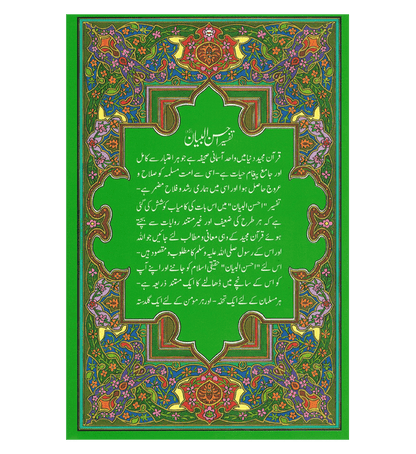 تفسیر احسن البیان
قرآن مجید دنیا میں واحد آسمانی صحیفہ ہے جو ہر اعتبار سے کامل
اور جامع پیغام حیات ہے - اسی سے امت مسلمہ کو صلاح و
عروج حاصل ہوا اور اسی میں ہماری رشد و فلاح مضمر ہے -
تفسیر "احسن البیان" میں اس بات کی کامیاب کوشش کی گئی
ہے کہ ہر طرح کی ضعیف اور غیر مستند روایات سے بچتے
ہوئے قرآن مجید کے وہی معانی و مطالب لئے جائیں جو اللہ
اور اس کے رسول صلی اللہ علیہ وسلم کا مطلوب و مقصود ہیں -
اس لئے "احسن البیان" حقیقی اسلام کو جاننے اور اپنے آپ
کو اس کے سانچے میں ڈھالنے کا ایک مستند ذریعہ ہے -
ہر مسلمان کے لئے ایک تحفہ - اور ہر مومن کے لئے ایک گلدستہ